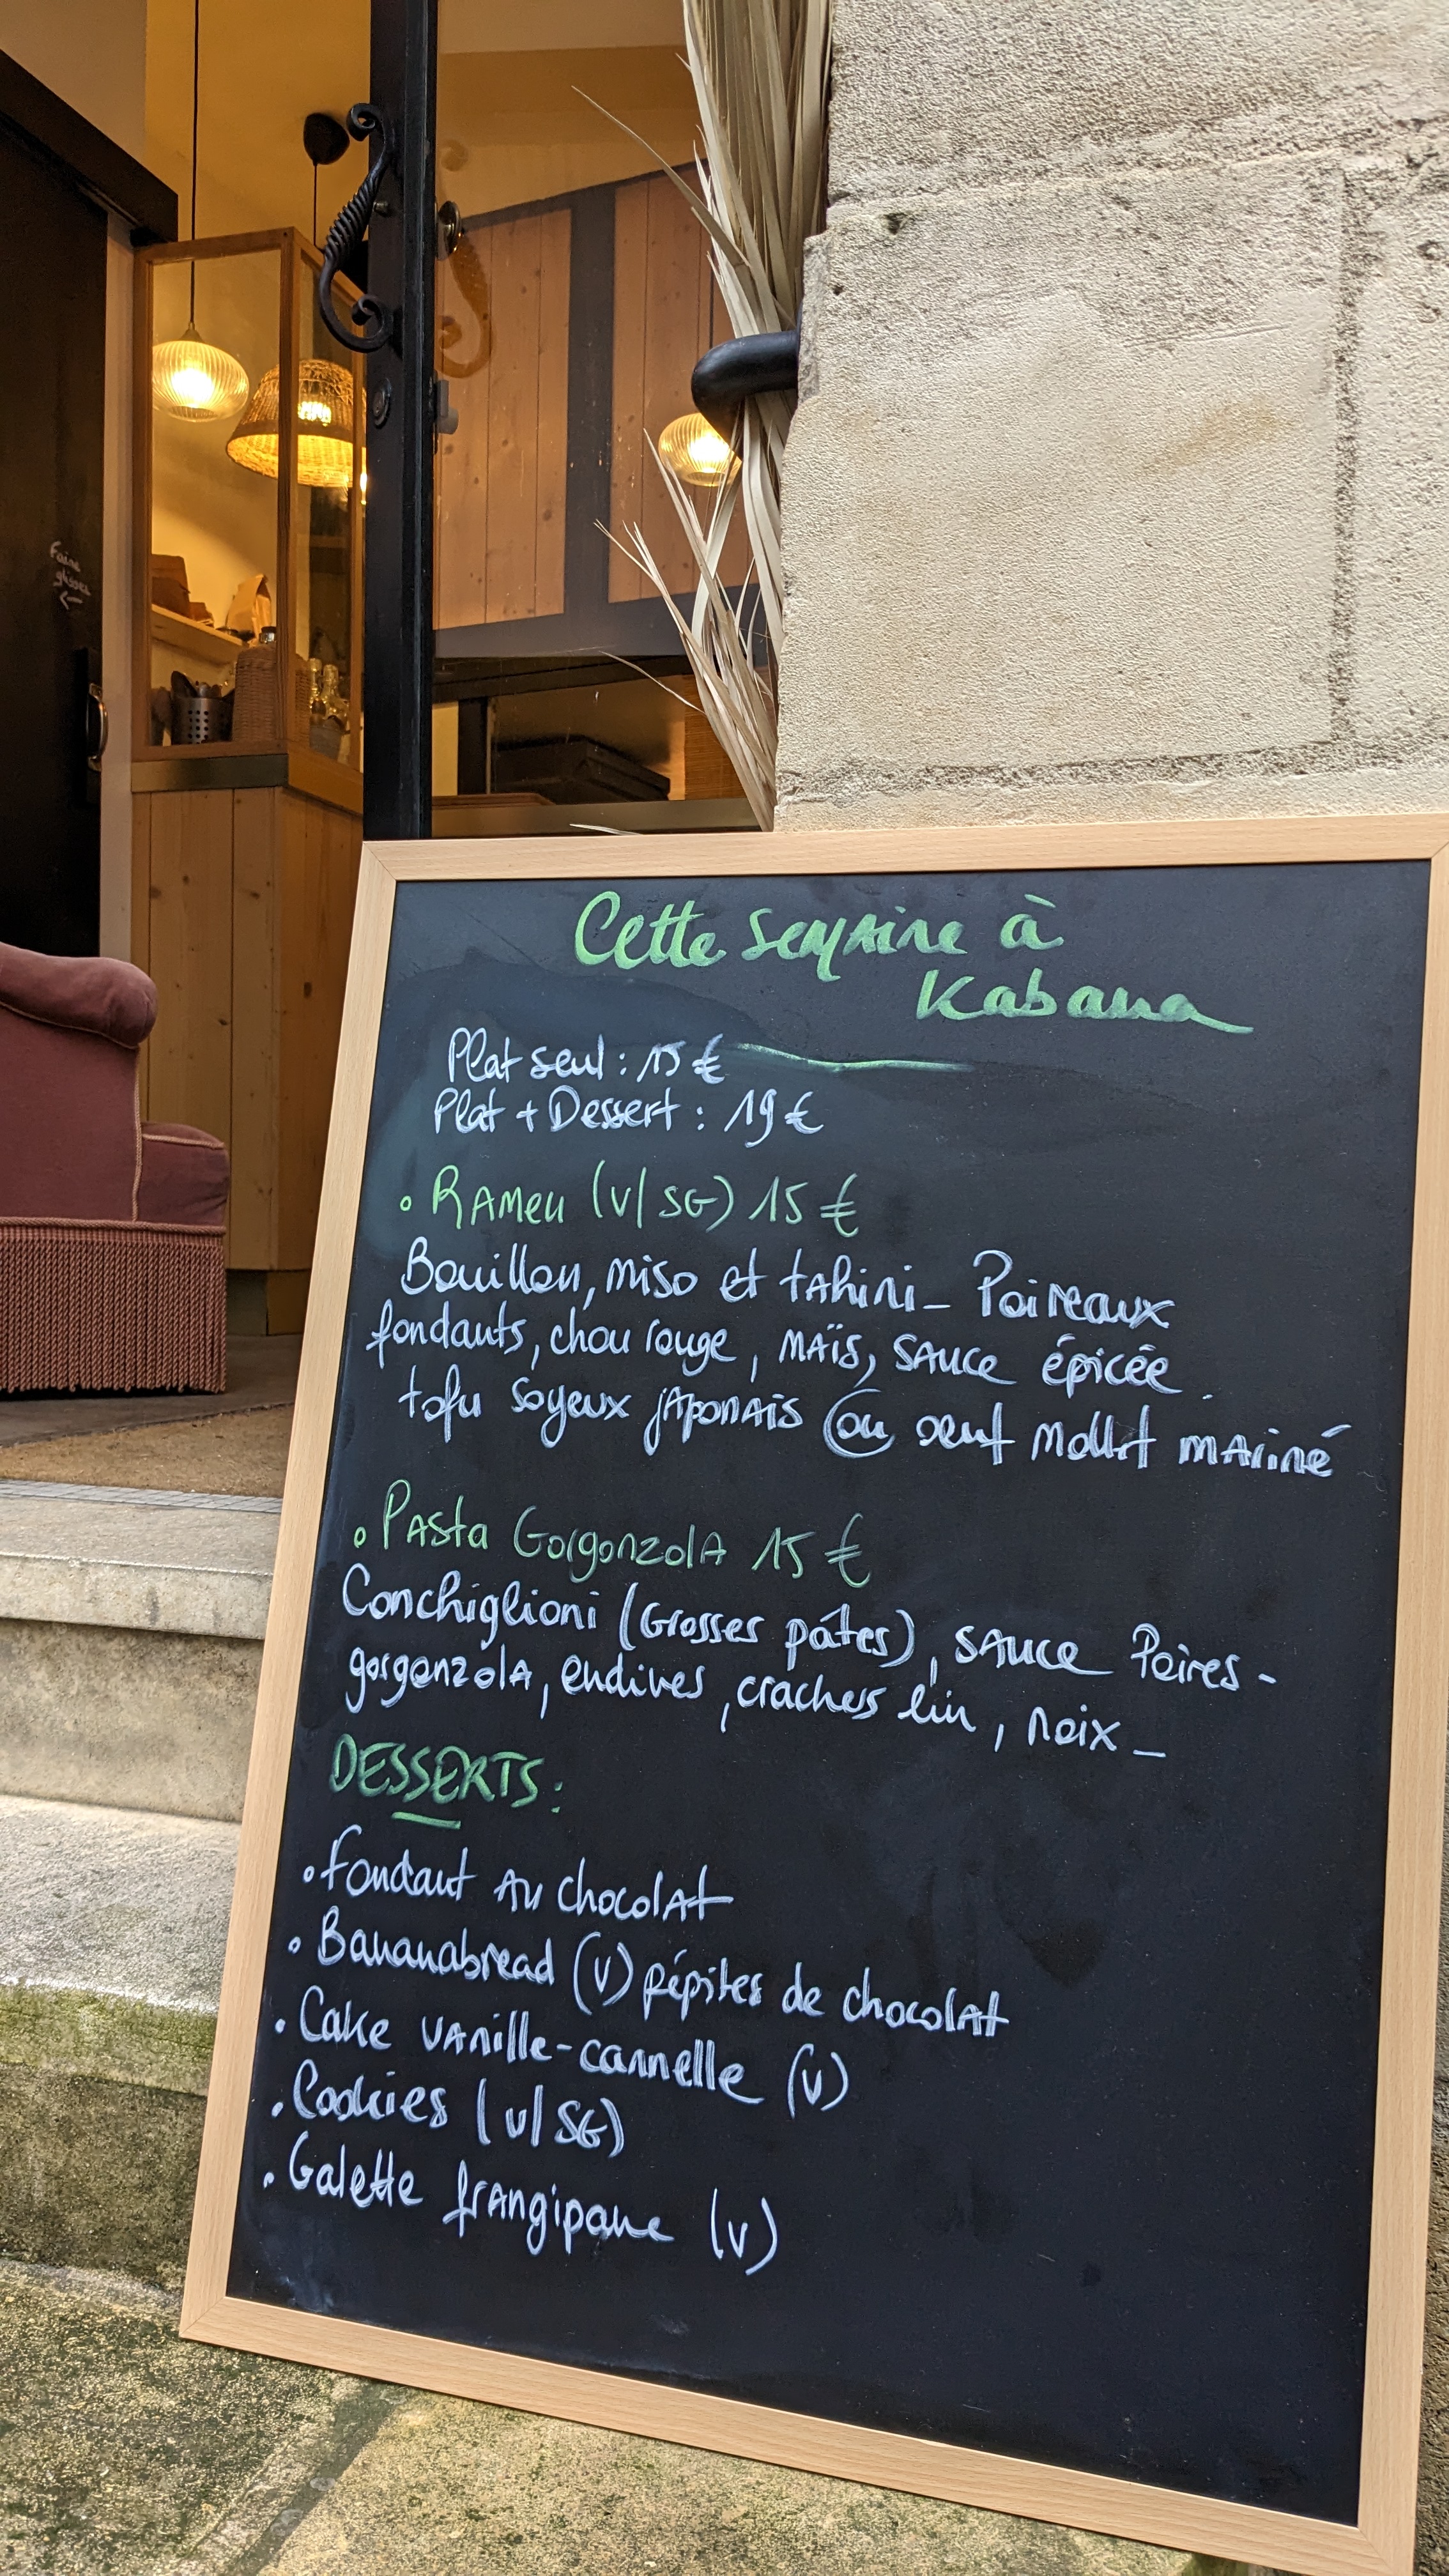 Faire
glisser
←
Cette semaine à
Kabana
Plat seul : 15 €
Plat + Dessert : 19 €
• Ramen (V/SG) 15 €
Bouillon, miso et tahini - Poireaux
fondants, chou rouge, maïs, sauce épicée.
tofu soyeux japonais ou oeuf mollet mariné
• Pasta Gorgonzola 15 €
Conchiglioni (Grosses pâtes), sauce Poires-
gorgonzola, endives, crackers lin, noix -
DESSERTS :
• Fondant au chocolat
• Bananabread (V) pépites de chocolat
• Cake vanille-cannelle (V)
• Cookies (V/SG)
• Galette frangipane (V)